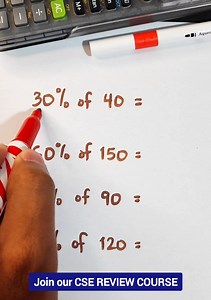 AC
30% of 40 =
60% of 150 =
% of 90 =
% of 120 =
Join our CSE REVIEW COURSE